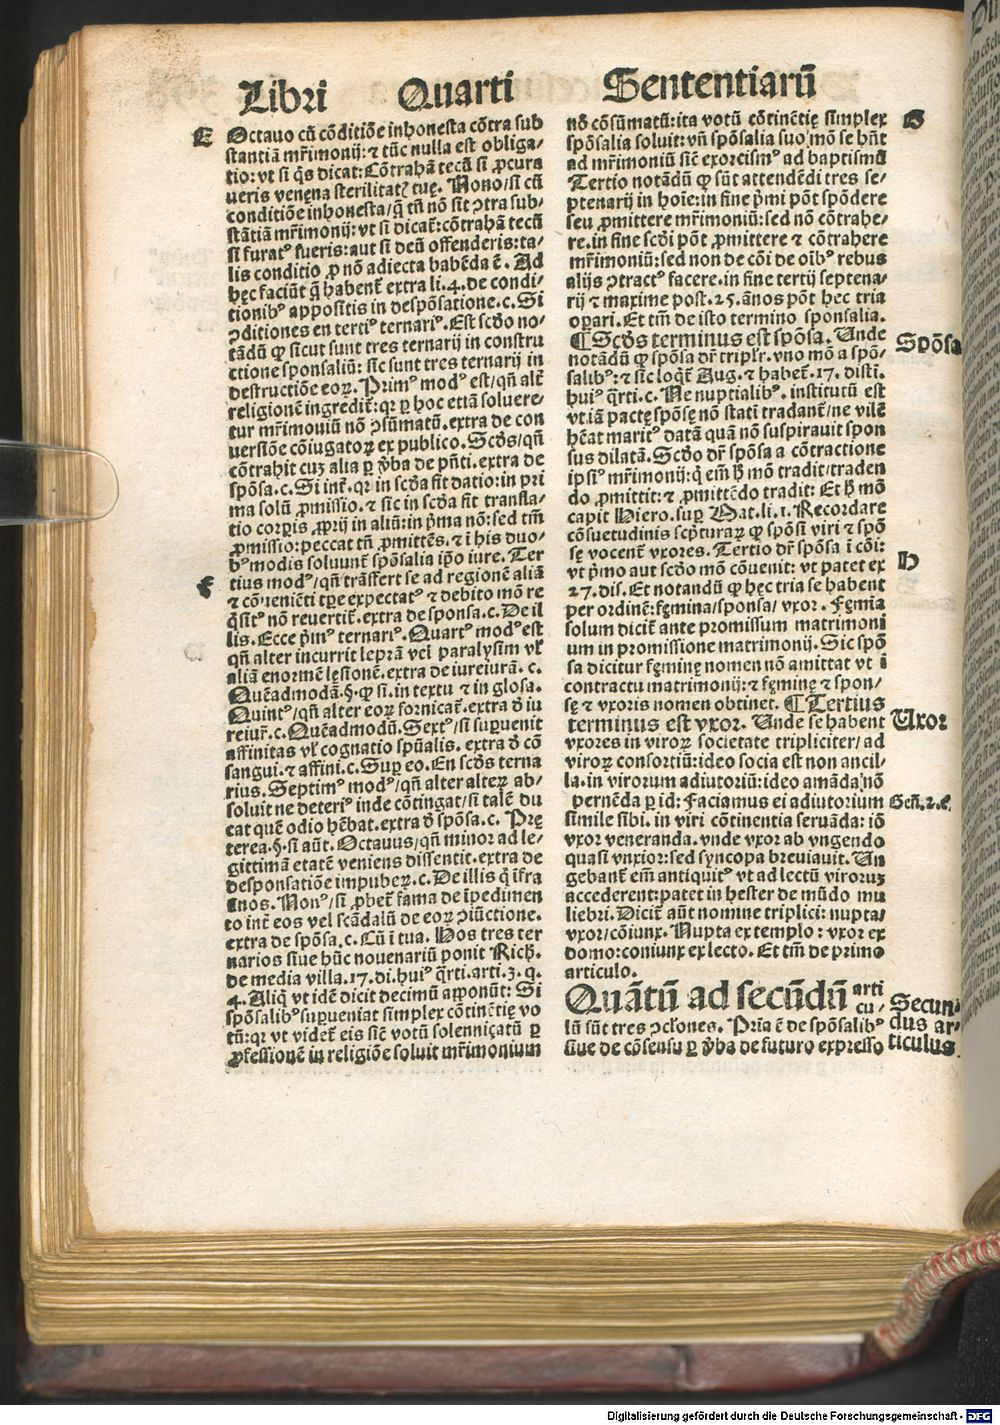 Libri Quarti Sententiarū
E
Octauo cū cōditiōe inhonesta cōtra sub
stantiā mr̄imonij: ⁊ tūc nulla est obliga-
tio: vt si q̄s dicat: Cōtrahā tecū si ꝓcura
ueris venęna sterilitatꝫ tuę. Nono/si cū
conditiōe inhonesta/q̄ tñ nō sit ↄtra sub-
stātiā mr̄imonij: vt si dicat̄: cōtrahā tecū
si furatꝰ fueris: aut si deū offenderis: ta-
lis conditio ꝓ nō adiecta habēda ē. Ad
hęc faciūt q̄ habent̄ extra li.4. de condi-
tionibꝰ appositis in despōsatione.c. Si
ↄditiones en tertiꝰ ternariꝰ. Est scd̄o no-
tādū ꝙ sicut sunt tres ternarij in constru
ctione sponsaliū: sic sunt tres ternarij in
destructiōe eoꝝ. Primꝰ modꝰ est/qñ alt̄
religionē ingredit̄: qꝛ ꝑ hoc etiā soluere/
tur mr̄imoniū nō ↄsūmatū. extra de con
uersiōe cōiugatoꝝ ex publico. Scd̄s/qñ
cōtrahit cuꝫ alia ꝑ v̄ba de pn̄ti. extra de
spōsa.c. Si int̄. qꝛ in scd̄a fit datio: in pri
ma solū ꝓmissio. ⁊ sic in scd̄a fit transla-
tio corꝑis ꝓprij in aliū: in p̄ma nō: sed tm̄
ꝓmissio: peccat tñ ꝓmittēs. ⁊ i his duo-
bꝰ modis soluunt̄ spōsalia ip̄o iure. Ter
f
tius modꝰ/qñ trāsfert se ad regionē aliā
⁊ cōueniēti tp̄e expectatꝰ ⁊ debito mō re
q̄sitꝰ nō reuertit̄. extra de sponsa.c. De il
lis. Ecce p̄mꝰ ternariꝰ. Quartꝰ modꝰ est
qñ alter incurrit leprā vel paralysim vl̓
aliā enormē lęsionē. extra de iureiurā. c.
Quēadmodā.§. ꝙ si. in textu ⁊ in glosa.
Quintꝰ/qñ alter eoꝝ fornicat̄. extra d̄ iu
reiur̄.c. Quēadmodū. Sextꝰ/si suꝑuenit
affinitas vl̓ cognatio spūalis. extra d̄ cō
sangui.⁊ affini.c. Suꝑ eo. En scd̄s terna
rius. Septimꝰ modꝰ/qñ alter alterꝝ ab/
soluit ne deteriꝰ inde cōtingat/si talē du
cat quē odio hēbat. extra d̄ spōsa.c. Prę
terea.§. si aūt. Octauus/qñ minor ad le-
gittimā etatē veniens dissentit. extra de
desponsatiōe impubeꝝ.c. De illis q̄ īfra
ānos. Nonꝰ/si ꝓbet̄ fama de īpedimen
to int̄ eos vel scādalū de eoꝝ ↄiūctione.
extra de spōsa.c. Cū i tua. Hos tres ter
narios siue hūc nouenariū ponit Rich.
de media villa.17.di.huiꝰ q̄rti.arti.3.q.
4. Aliq̄ vt idē dicit decimū apponūt: Si
spōsalibꝰ suꝑueniat simplex cōtinētię vo
tū: qꝛ vt videt̄ eis sic̄ votū solennizatū ꝑ
ꝓfessionē in religiōe soluit mr̄imonium
nō cōsūmatū: ita votū cōtinētię simplex
G
spōsalia soluit: vñ spōsalia suo mō se hn̄t
ad mr̄imoniū sic̄ exorcismꝰ ad baptismū
Tertio notādū ꝙ sūt attendēdi tres se-
ptenarij in hoīe: in fine p̄mi pōt spōdere
seu ꝓmittere mr̄imoniū: sed nō cōtrahe-
re. in fine scd̄i pōt ꝓmittere ⁊ cōtrahere
mr̄imoniū: sed non de cōi de oībꝰ rebus
alijs ↄtractꝰ facere. in fine tertij septena-
rij ⁊ maxime post.25.ānos pōt hec tria
oꝑari. Et tm̄ de isto termino sponsalia.
¶Scd̄s terminus est spōsa. Unde
Spōsa
notādū ꝙ spōsa dr̄ triplr̄. vno mō a spō-
salibꝰ: ⁊ sic loqt̄ Aug.⁊ habet̄.17.disti.
huiꝰ q̄rti.c. Ne nuptialibꝰ. institutū est
vt iā pactę spōsę nō stati tradant̄/ne vilē
hēat maritꝰ datā quā nō suspirauit spon
sus dilatā. Scd̄o dr̄ spōsa a cōtractione
ipsiꝰ mr̄imonij: q̄ em̄ h̄ mō tradit/traden
do ꝓmittit: ⁊ ꝓmittēdo tradit: Et h̄ mō
capit Hiero. suꝑ Mat.li.1. Recordare
cōsuetudinis scpturaꝝ ꝙ spōsi viri ⁊ spō
sę vocent̄ vxores. Tertio dr̄ spōsa ī cōi:
H
vt p̄mo aut scd̄o mō cōuenit: vt patet ex
27.dis. Et notandū ꝙ hęc tria se habent
per ordinē: fęmina/sponsa/vxor. Fęmīa
solum dicit̄ ante promissum matrimoni
um in promissione matrimonij. Sic spō
sa dicitur fęminę nomen nō amittat vt ī
contractu matrimonij: ⁊ fęminę ⁊ spon/
sę ⁊ vxoris nomen obtinet. ¶Tertius
terminus est vxor. Unde se habent
Uxor
vxores in viroꝝ societate tripliciter/ad
viroꝝ consortiū: ideo socia est non ancil-
la. in virorum adiutoriū: ideo amāda/nō
pernēda ꝑ id: Faciamus ei adiutorium
Geñ.2.c.
simile sibi. in viri cōtinentia seruāda: iō
vxor veneranda. vnde vxor ab vngendo
quasi vnxior: sed syncopa breuiauit. Un
gebant̄ em̄ antiquitꝰ vt ad lectū viroruꝫ
accederent: patet in hester de mūdo mu
liebri. Dicit̄ aūt nomine triplici: nupta/
vxor/cōiunx. Nupta ex templo: vxor ex
domo: coniunx ex lecto. Et tm̄ de primo
articulo.
Quātū ad secūdū arti
cu/
Secun-
dus ar-
ticulus.
lū sūt tres ↄcl̓ones. Prīa ē de spōsalibꝰ
siue de cōsensu ꝑ v̄ba de futuro expresso
Digitalisierung gefördert durch die Deutsche Forschungsgemeinschaft - DFG